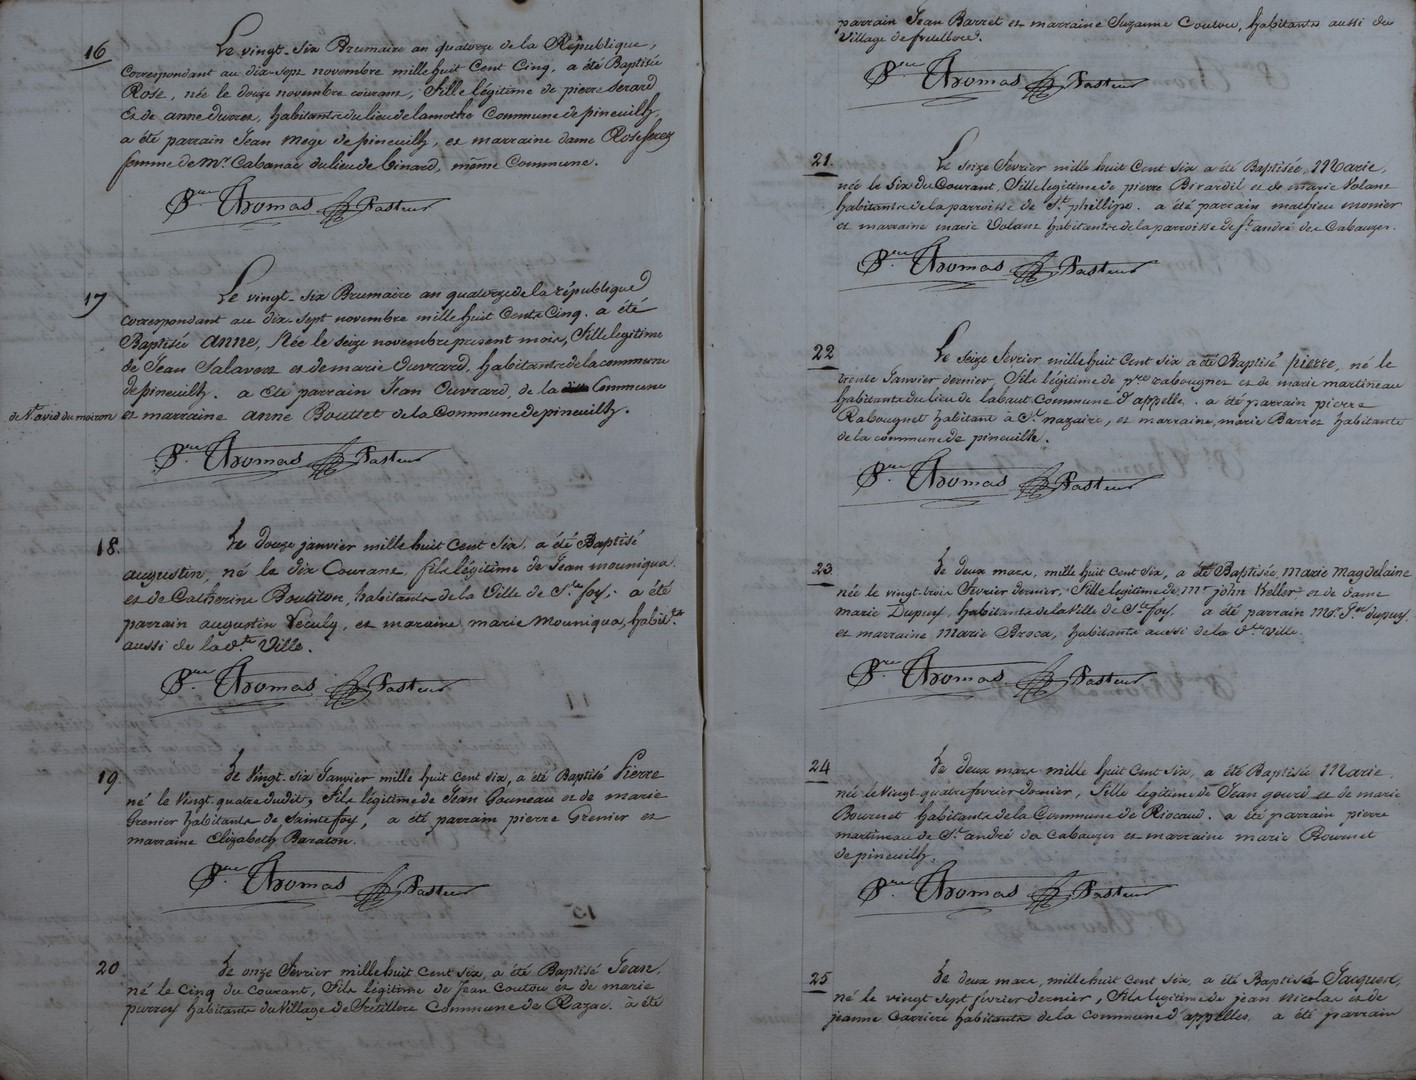 16
Le vingt-six Brumaire an quatorze de la République,
Correspondant au dix-sept novembre mille huit Cent Cinq, a été Baptisée
Rose, née le douze novembre courant, fille légitime de pierre serard
Et de anne habitants du lieu de lamothe Commune de pineuilh,
a été parrain Jean Mege de pineuilh, et marraine dame Rose
femme de Mr Cabanac du lieu de Ginard, même Commune.
Pre Thomas Pasteur
17
Le vingt-six Brumaire an quatorze de la république
correspondant au dix-sept novembre mille huit Cents Cinq. a été
Baptisée anne, Née le seize novembre present mois, fille legitime
de Jean Salavert et de marie Ouvrard, habitants de la commune
de pineuilh. a été parrain Jean Ouvrard, de la Commune
de St avid du moiron
et marraine anne Bouttet de la Commune de pineuilh.
Pre Thomas Pasteur
18.
Le douze janvier mille huit Cent Six, a été Baptisé
augustin, né le dix Courant, fils légitime de Jean mouniqua
et de Catherine Boutiton, habitants de la Ville de Ste foy, a été
parrain augustin Feculy, et maraine marie Mouniqua, habitts
aussi de la dte Ville.
Pre Thomas Pasteur
19.
Le Vingt-six Janvier mille huit Cent six, a été Baptisé Pierre
né le Vingt-quatre dudit, fils légitime de Jean Gouneau et de marie
Grenier habitants de Sainte foy, a été parrain pierre Grenier et
marraine Elizabeth Baraton.
Pre Thomas Pasteur
20
Le onze Fevrier mille huit Cent six, a été Baptisé Jean,
né le Cinq du Courant, fils légitime de Jean Coutou et de marie
purrey habitants du Village de Fretillere Commune de Razac. a été
parrain Jean Barret et marraine Suzanne Coutou, habitants aussi du
Village de
Pre Thomas Pasteur
21.
Le seize fevrier mille huit Cent Six a été Baptisée, Marie,
née le Six du Courant, fille legitime de pierre Birardil et de marie Volant
habitants de la parroisse de St phillipe. a été parrain mathieu monier
et marraine marie Volant habitants de la parroisse de St andré de Cabauzes.
Pre Thomas Pasteur
22
Le Seize fevrier mille huit Cent Six a été Baptisé pierre, né le
trente Janvier dernier, fils légitime de pre rabougnet et de marie martineau
habitants du lieu de labaut Commune d'appelle. a été parrain pierre
Rabougnet habitant à St nazaire, et marraine, marie Barret habitante
de la commune de pineuille.
Pre Thomas Pasteur
23
Le deux mars, mille huit Cent Six, a été Baptisée, marie magdelaine
née le vingt-trois fevrier dernier, fille legitime de Mr john Keller et de dame
marie Dupuy, habitants de la Ville de Ste foy. a été parrain Mr Jn dupuy
et marraine Marie Broca, habitants aussi de la dte Ville.
Pre Thomas Pasteur
24
Le deux mars mille huit Cent Six, a été Baptisée Marie,
née le Vingt-quatre fevrier dernier, fille legitime de Jean gourd et de marie
Bournet habitants de la Commune de Riocaud. a été parrain pierre
martineau de St andré de Cabauzes et marraine marie Bournet
de pineuilh.
Pre Thomas Pasteur
25
Le deux mars, mille huit Cent six, a été Baptisé Jacques,
né le vingt sept fevrier dernier, fils legitime de jean nicolas et de
jeanne Carriere habitants de la Commune d'appelles, a été parrain